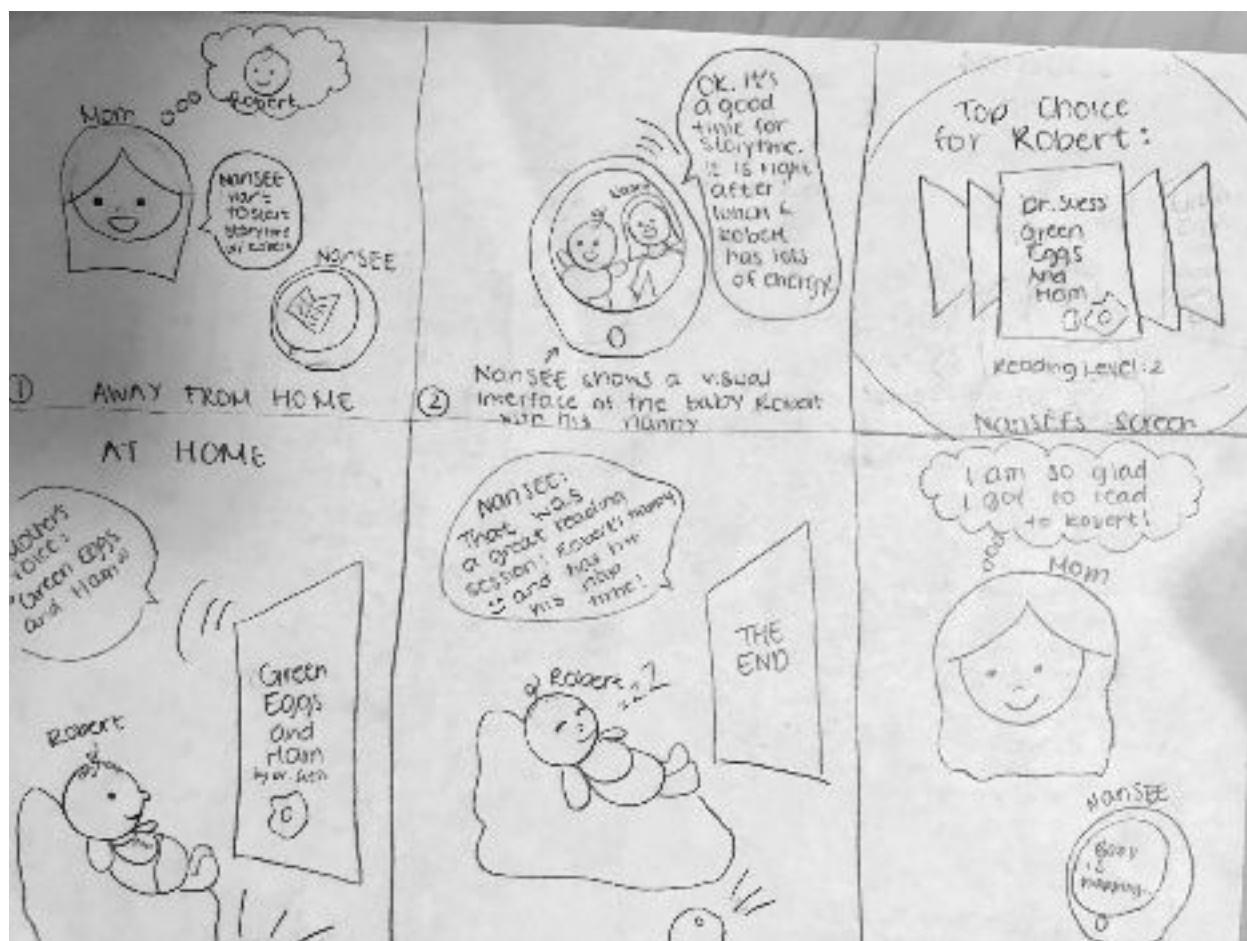 Robert
Mom
NanSEE
want
to start
storytime
w/ Robert
NanSEE
① AWAY FROM HOME
OK. It's
a good
time for
storytime.
It is right
after
lunch &
Robert
has lots
of energy!
② NanSEE shows a visual
interface of the baby Robert
with his nanny
Top Choice
for Robert:
Dr. Suess
Green
Eggs
And
Ham
Reading Level: 2
NanSEE's Screen
AT HOME
Mother's
voice:
"Green Eggs
and Ham"
Robert
Green
Eggs
and
Ham
NanSEE:
That was
a great reading
session! Robert's happy
and has hit
his nap
time!
Robert
THE
END
I am so glad
I got to read
to Robert!
Mom
NanSEE
Baby
is
napping...